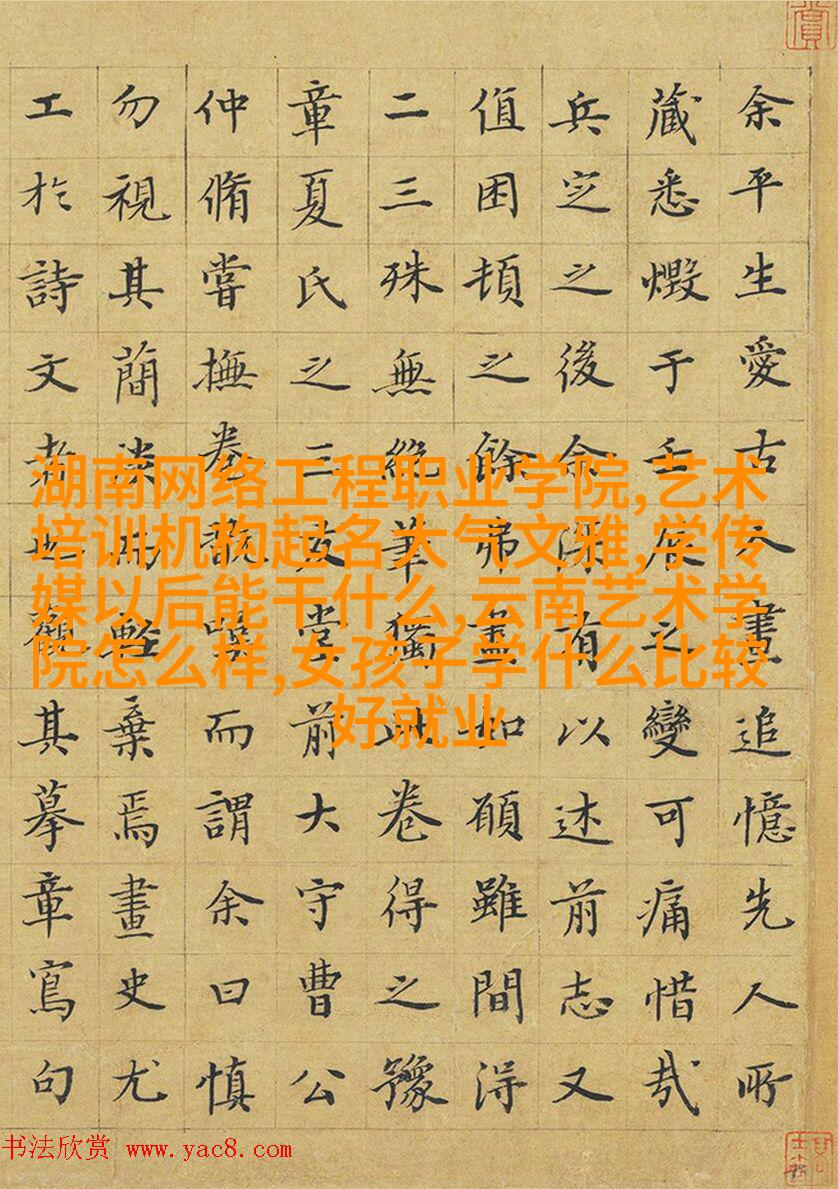 余平生愛古人畫追憶先人所
藏悉燬于壬辰之變可痛惜哉
兵定之後余有以述前志又
值困頓之餘弗盡如願雖間得
二三殊無絕筆獨此卷得之豫
章夏氏之三友堂前大守曹公
仲脩嘗撫卷歎嘆而謂余曰慎
勿視其簡淡而輕棄焉畫史尤
工於詩文者也觀其摹章寫句
湖南网络工程职业学院,艺术
培训机构起名大气文雅,学传
媒以后能干什么,云南艺术学
院怎么样,女孩子学什么比较
好就业
书法欣赏 www.yac8.com